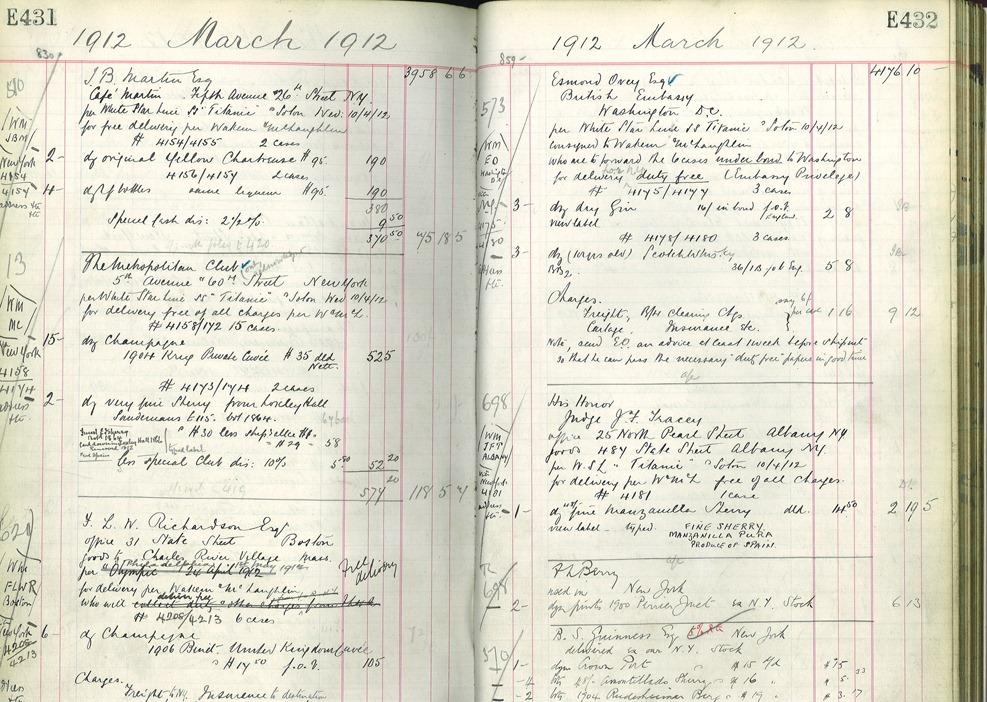 E431
1912 March 1912
830
3958 6 6
J B. Martin Esq
Café Martin Fifth Avenue & 26th Street NY
per White Star Line SS "Titanic" Soton Wed: 10/4/12
for free delivery per Wakem & McLaughlin
# 4154/4155 2 cases
2- dz original Yellow Chartreuse $95. 190
# 4156/4157 2 cases
4- dz ½ bottles same liqueur $95. 190
380
Special Cash dis: 2½%. 9 50
370 50 75 18 5
The Metropolitan Club
5th Avenue & 60th Street New York
per White Star Line SS "Titanic" Soton Wed 10/4/12
for delivery free of all charges per W & McL
# 4158/172 15 cases
15- dz Champagne
1904 Krug Private Cuvée $35 dld 525
Nett.
# 4173/174 2 cases
2- dz very fine Sherry from Loseley Hall
Sandemans bot 1864.
$30 less
$29 58
less Special Club dis: 10% 5 80 52 20
574 20 118 5 4
F. L. W. Richardson Esq
office 31 State Street Boston
goods to Charles River Village Mass.
per "Olympic" 24 April 1912
Philadelphia 1st May 1912
free delivery
for delivery per Wakem & McLaughlin
who will collect duty & other charges from
# 4208/4213 6 cases
6- dz Champagne
1906 Binet United Kingdom Cuvée
$17 50 f.o.b. 105
Charges.
Freight to NY, Insurance to destination
E432
1912 March 1912.
859
4176 10 -
573
Esmond Ovey Esq
British Embassy
Washington D.C.
per White Star Line SS Titanic Soton 10/4/12
consigned to Wakem & McLaughlin
who are to forward the 6 cases under bond to Washington
for delivery duty free (Embassy Privelege)
# 4175/4177 3 cases
3- dz dry Gin 16/ in bond f.o.b. England 2 8
view label
# 4178/4180 3 cases
3- dz (10 yrs old) Scotch Whisky
36/ IB f.o.b Eng. 5 8
Charges.
Freight, B/L, Clearing Chgs say 6/ per case 1 16 9 12
Cartage, Insurance &c.
Note, send E.O. an advice at least 1 week before shipment
so that he can pass the necessary "duty free" papers in good time
698
His Honor
Judge J. F. Tracey
office 25 North Pearl Street Albany NY
goods 487 State Street Albany NY.
per W.S.L "Titanic" Soton 10/4/12
for delivery per W & McL free of all charges.
# 4181 1 case
1- dz fine Manzanilla Sherry dld. 14 50 2 19 5
view label typed. FINE SHERRY.
MANZANILLA PURA
PRODUCE OF SPAIN.
F L Berry
used in New York
2- dzn pints 1900 Perrier Jouet ex N.Y. Stock 6 13
570
B. S. Guinness Esq New York
delivered ex our N.Y. Stock
1- dzn Crown Port $15 $15
4 bts Amontillado Sherry $16 $5. 33
2 bts 1904 Rudesheimer Berg $19 $3. 17